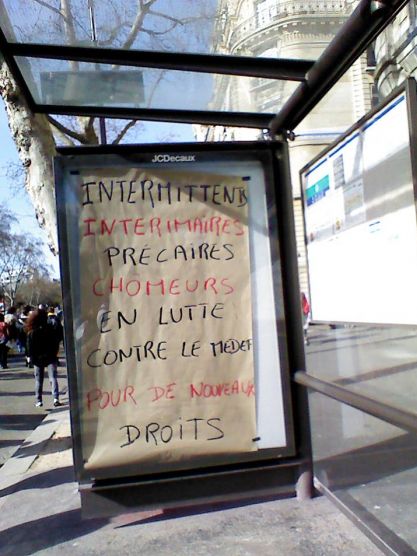 JCDecaux
INTERMITTENTS
INTERIMAIRES
PRÉCAIRES
CHOMEURS
EN LUTTE
CONTRE LE MEDEF
POUR DE NOUVEAUX
DROITS